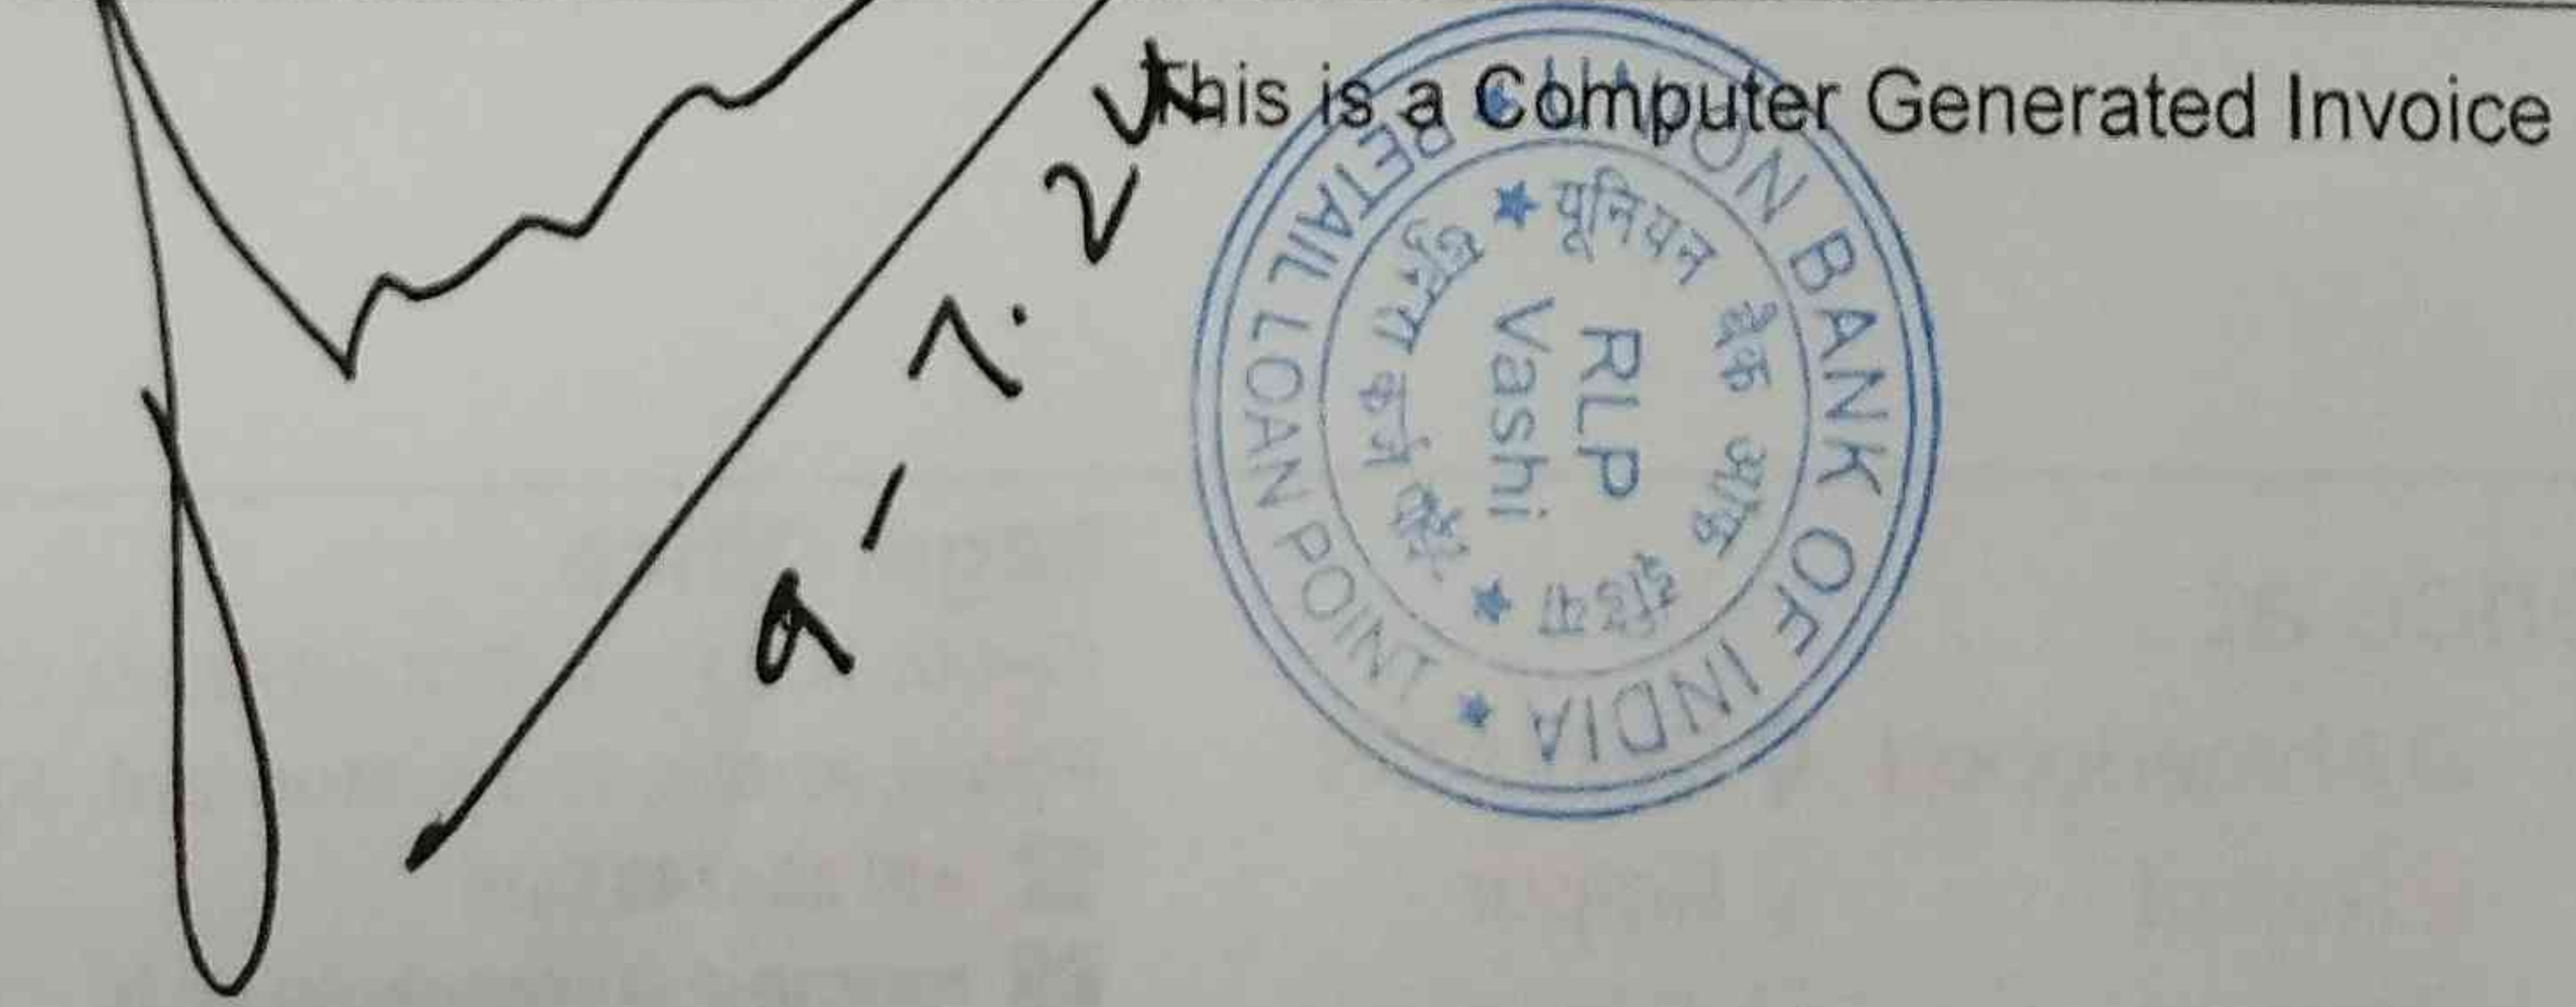 This is a Computer Generated Invoice
UNION BANK OF INDIA
RETAIL LOAN POINT
यूनियन बैंक ऑफ इंडिया
RLP
Vashi